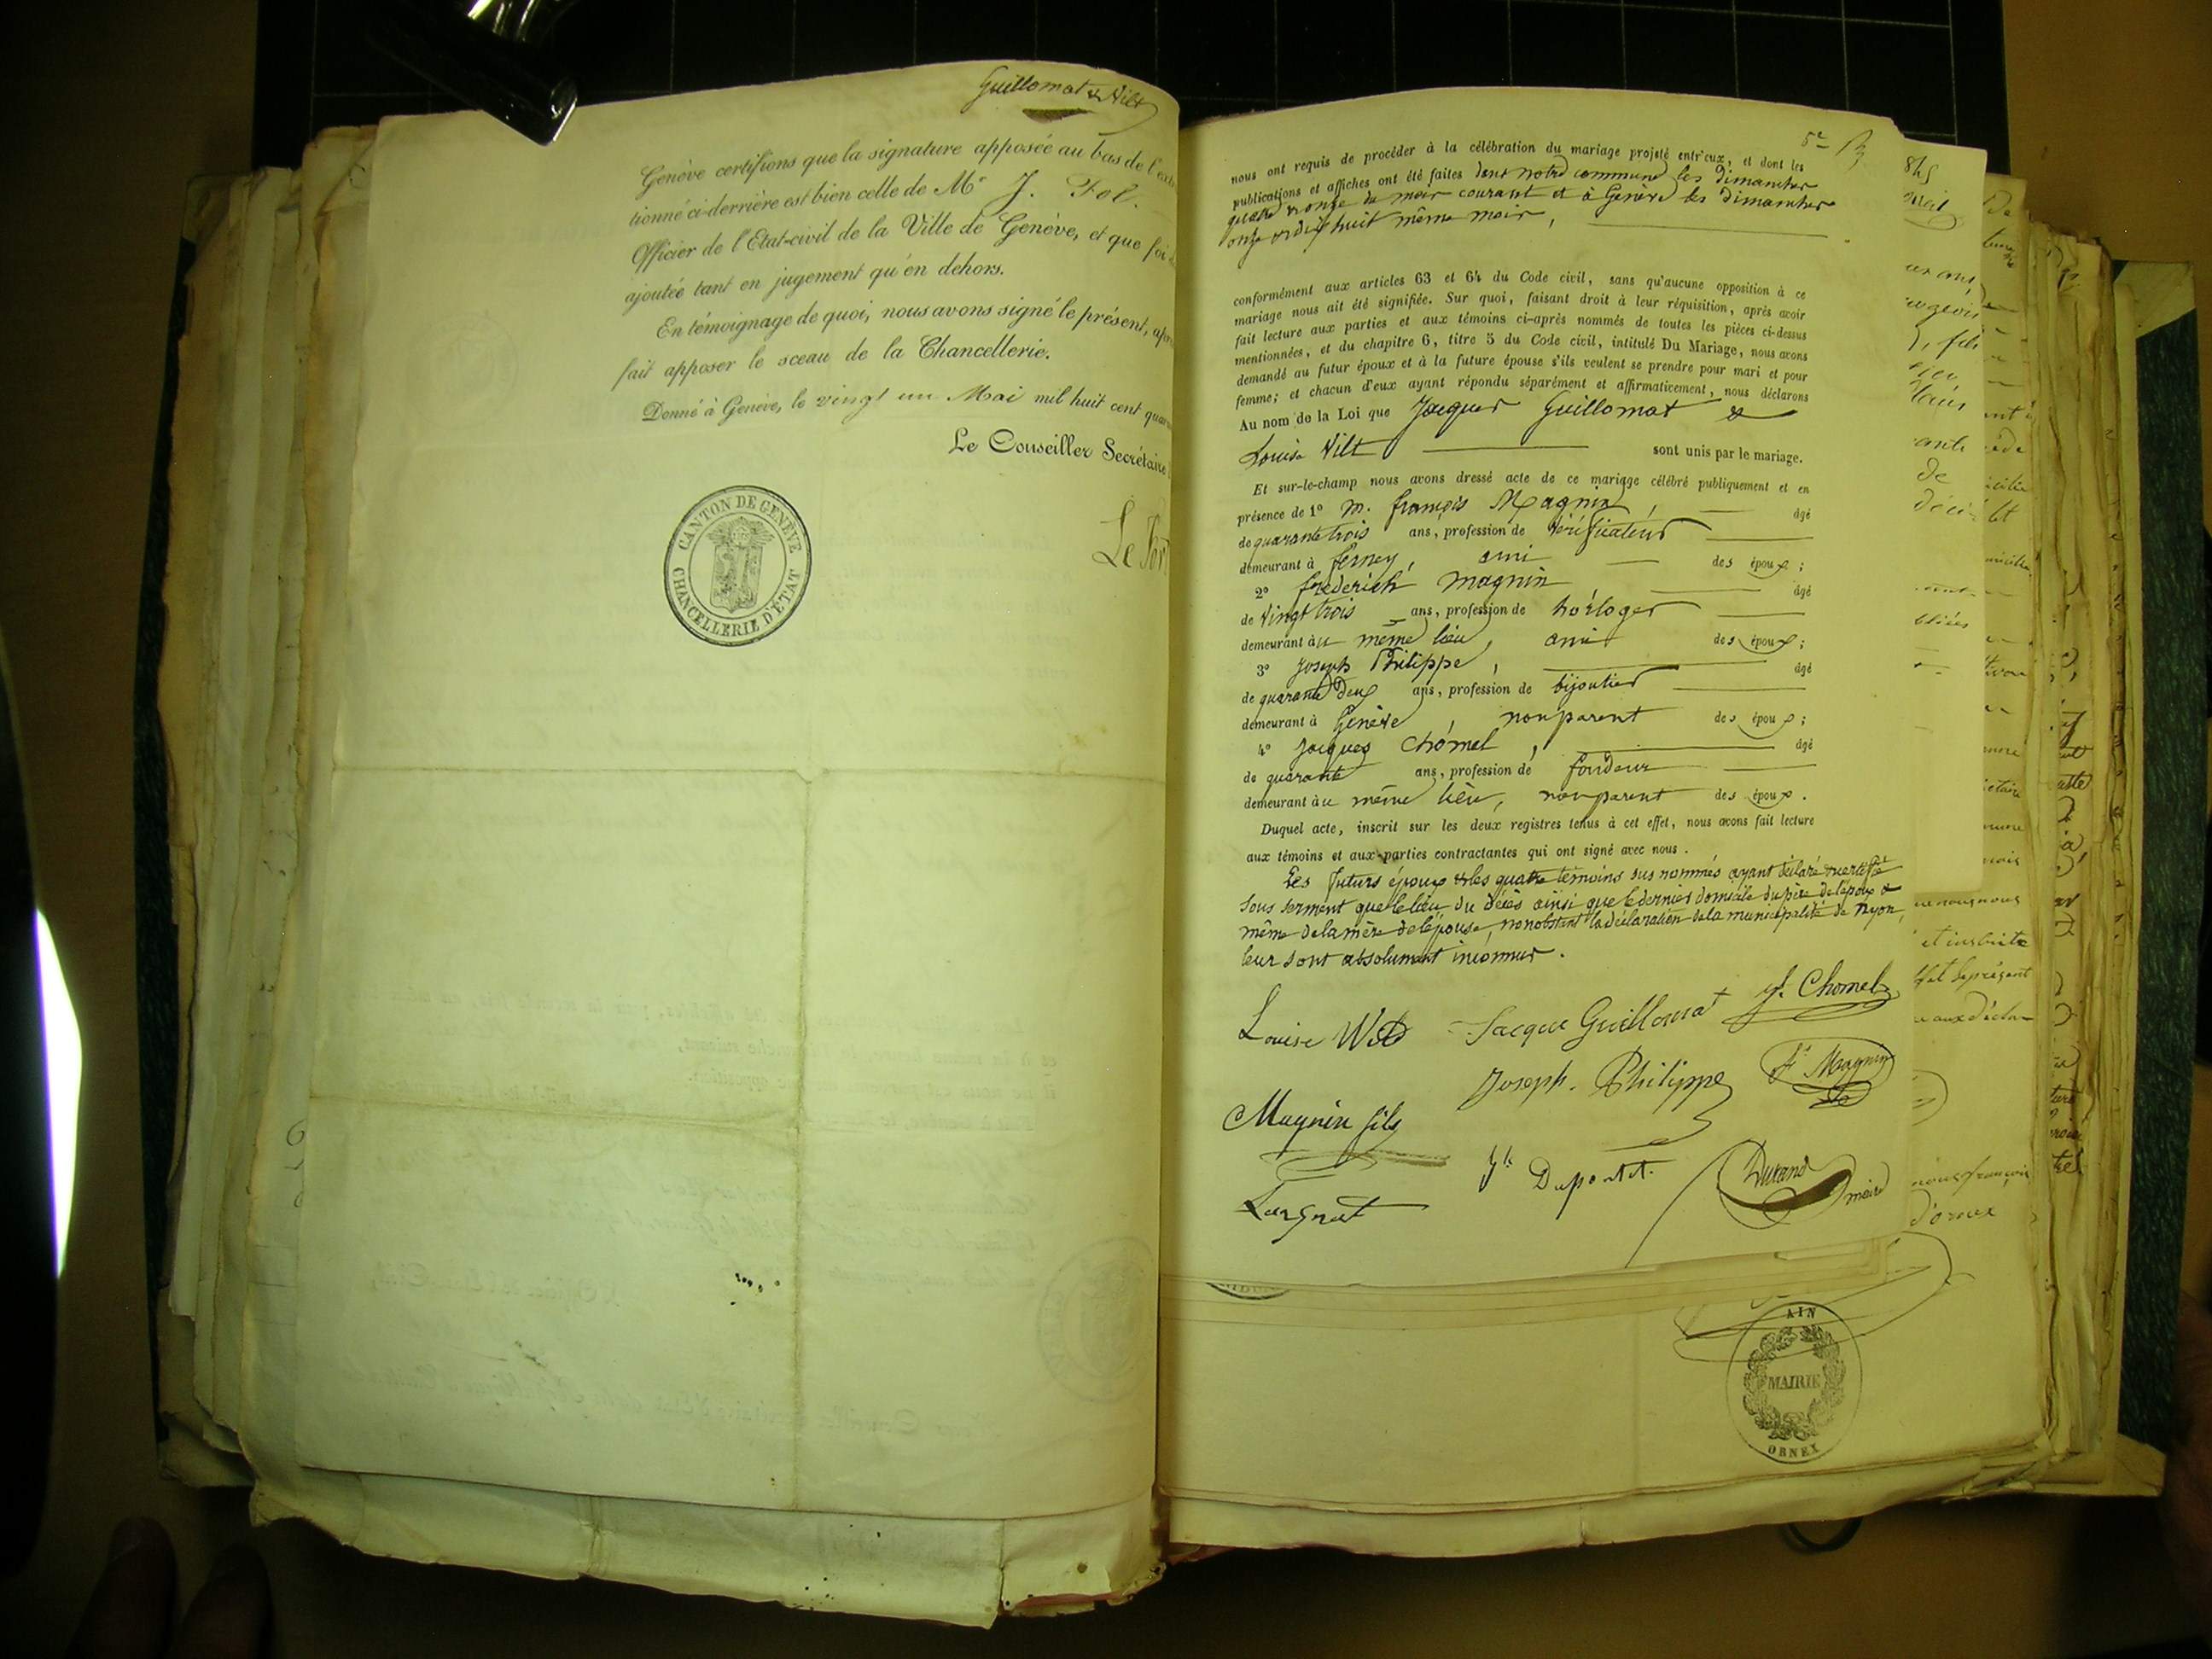 Guillomat & Wilt
Genève certifions que la signature apposée au bas de l'ext
tionné ci-derrière est bien celle de Mr J. Fol.
Officier de l'Etat-civil de la Ville de Genève, et que foi
ajoutée tant en jugement qu'en dehors.
En témoignage de quoi, nous avons signé le présent, apr
fait apposer le sceau de la Chancellerie.
Donné à Genève, le vingt un Mai mil huit cent quar
Le Conseiller Secrétaire
CANTON DE GENÈVE
CHANCELLERIE D'ÉTAT
nous ont requis de procéder à la célébration du mariage projeté entr'eux, et dont les
publications et affiches ont été faites dans notre commune les dimanches
quatre & onze du mois courant et à Genève les dimanches
onze & dix huit même mois,
conformément aux articles 63 et 64 du Code civil, sans qu'aucune opposition à ce
mariage nous ait été signifiée. Sur quoi, faisant droit à leur réquisition, après avoir
fait lecture aux parties et aux témoins ci-après nommés de toutes les pièces ci-dessus
mentionnées, et du chapitre 6, titre 5 du Code civil, intitulé Du Mariage, nous avons
demandé au futur époux et à la future épouse s'ils veulent se prendre pour mari et pour
femme; et chacun d'eux ayant répondu séparément et affirmativement, nous déclarons
Au nom de la Loi que Jacques Guillomat &
Louise Wilt sont unis par le mariage.
Et sur-le-champ nous avons dressé acte de ce mariage célébré publiquement et en
présence de 1º M. françois Magnin, âgé
de quarante trois ans, profession de vérificateur
demeurant à ferney, ami des époux;
2º frederich magnin âgé
de vingt trois ans, profession de horloger
demeurant au même lieu, ami des époux;
3º Joseph Philippe, âgé
de quarante deux ans, profession de bijoutier
demeurant à Genève, non parent des époux;
4º Jacques Chomel, âgé
de quarante ans, profession de fondeur
demeurant au même lieu, non parent des époux.
Duquel acte, inscrit sur les deux registres tenus à cet effet, nous avons fait lecture
aux témoins et aux parties contractantes qui ont signé avec nous.
Les futurs époux & les quatre témoins sus nommés ayant déclaré & certifié
sous serment que le lieu du décès ainsi que le dernier domicile du père de l'époux &
même de la mère de l'épouse, nonobstant la déclaration de la municipalité de Nyon,
leur sont absolument inconnus.
Louise Wilt Jacque Guillomat J. Chomel
Joseph. Philippe fs Magnin
Magnin fils
Dupontet. Durand maire
AIN
MAIRIE
ORNEX